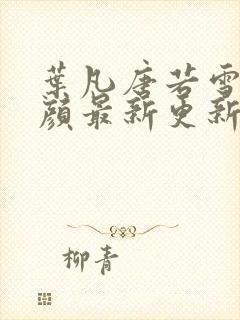 葉凡唐若雪
顏最新更新
柳青